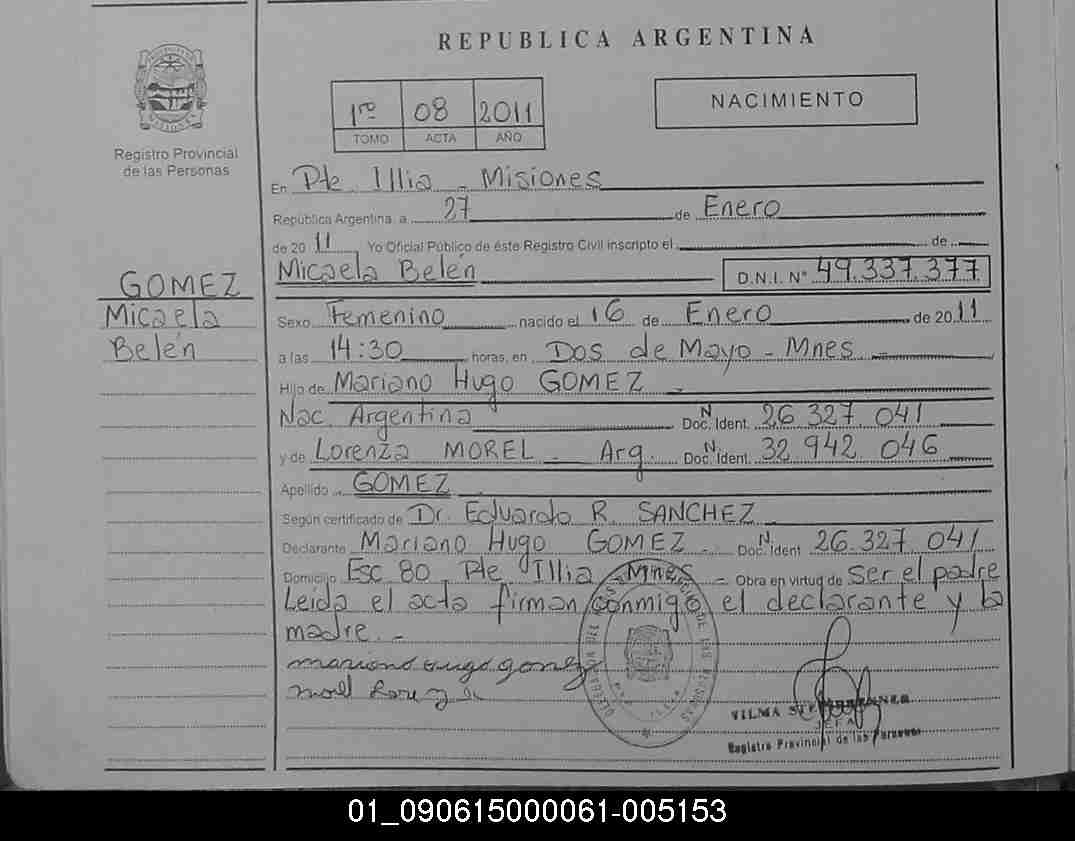 REPUBLICA ARGENTINA
1ro 08 2011
TOMO ACTA AÑO
NACIMIENTO
Registro Provincial
de las Personas
En Pte. Illia - Misiones
República Argentina, a 27 de Enero
de 2011 Yo Oficial Público de éste Registro Civil inscripto el de
Micaela Belén D.N.I. N° 49.337.377
GOMEZ
Micaela
Belén
Sexo Femenino nacido el 16 de Enero de 2011
a las 14:30 horas, en Dos de Mayo - Mnes
Hijo de Mariano Hugo GOMEZ
Nac. Argentina Doc. N Ident. 26 327 041
y de Lorenza MOREL - Arg. Doc. N Ident. 32 942 046
Apellido GOMEZ
Según certificado de Dr. Eduardo R. SANCHEZ
Declarante Mariano Hugo GOMEZ - Doc. N Ident 26.327 041
Domicilio Esc 80 Pte Illia - Mnes - Obra en virtud de ser el padre
Leida el acta firman conmigo el declarante y la
madre. -
mariano hugo gomez
VILMA
JEFA
Registro Provincial de las Personas
01_090615000061-005153